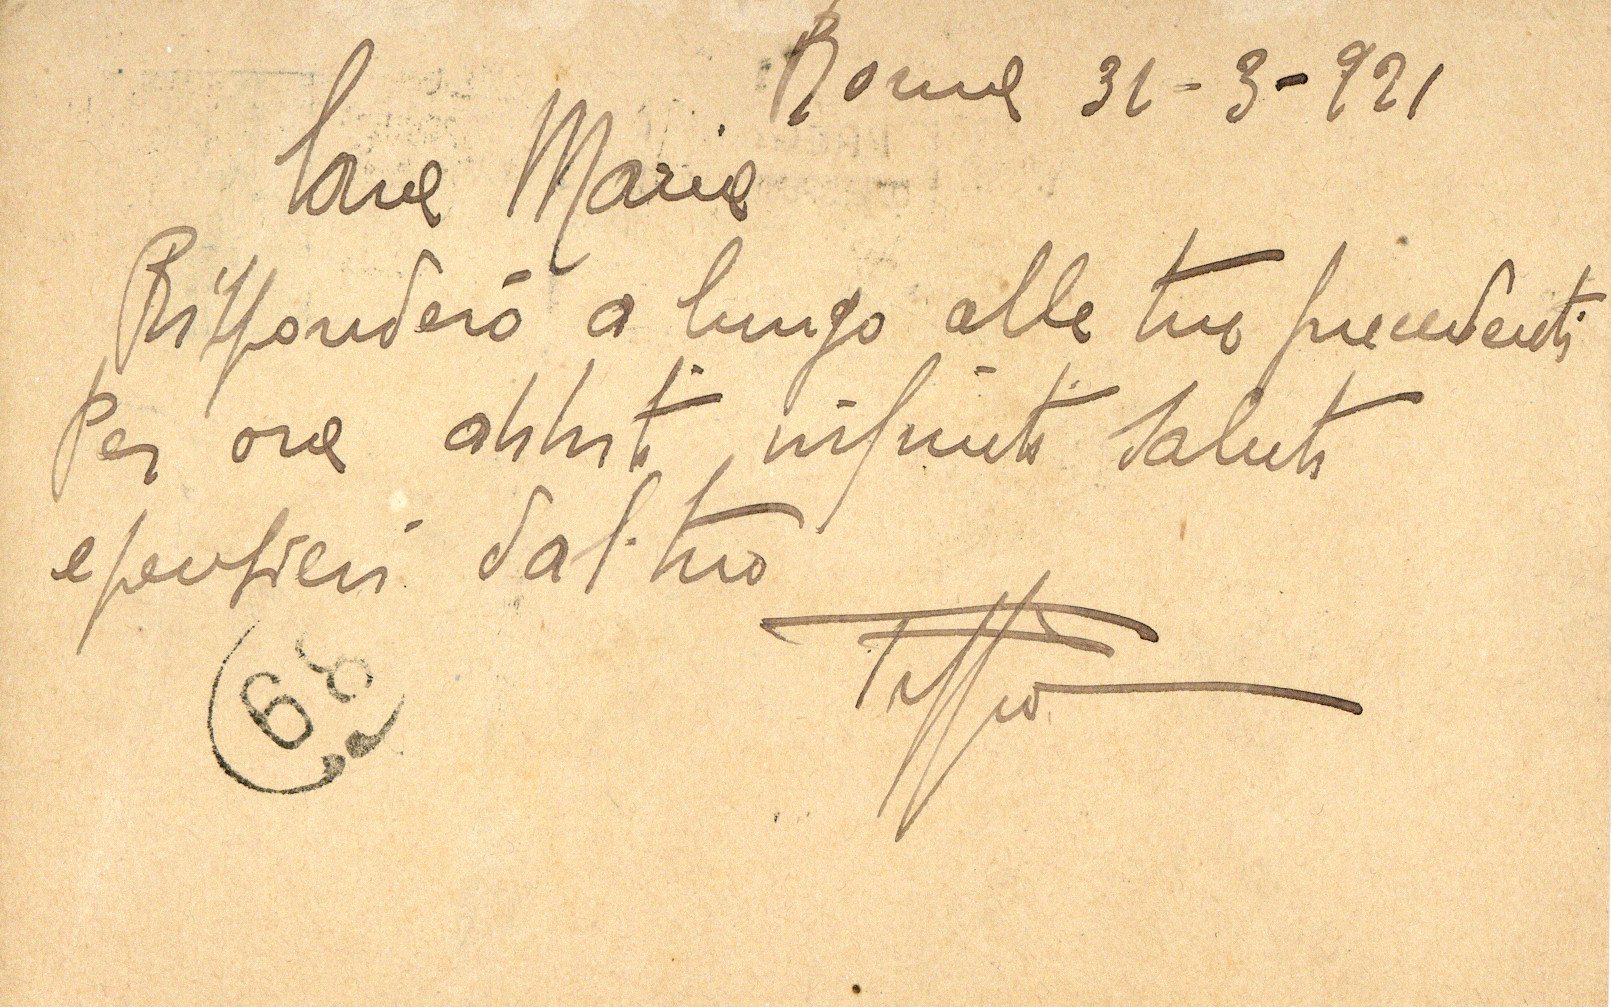 Roma 31-3-921
Cara Maria
Risponderò a lungo alle tue precedenti
Per ora abbiti infiniti saluti
e pensieri dal tuo
68